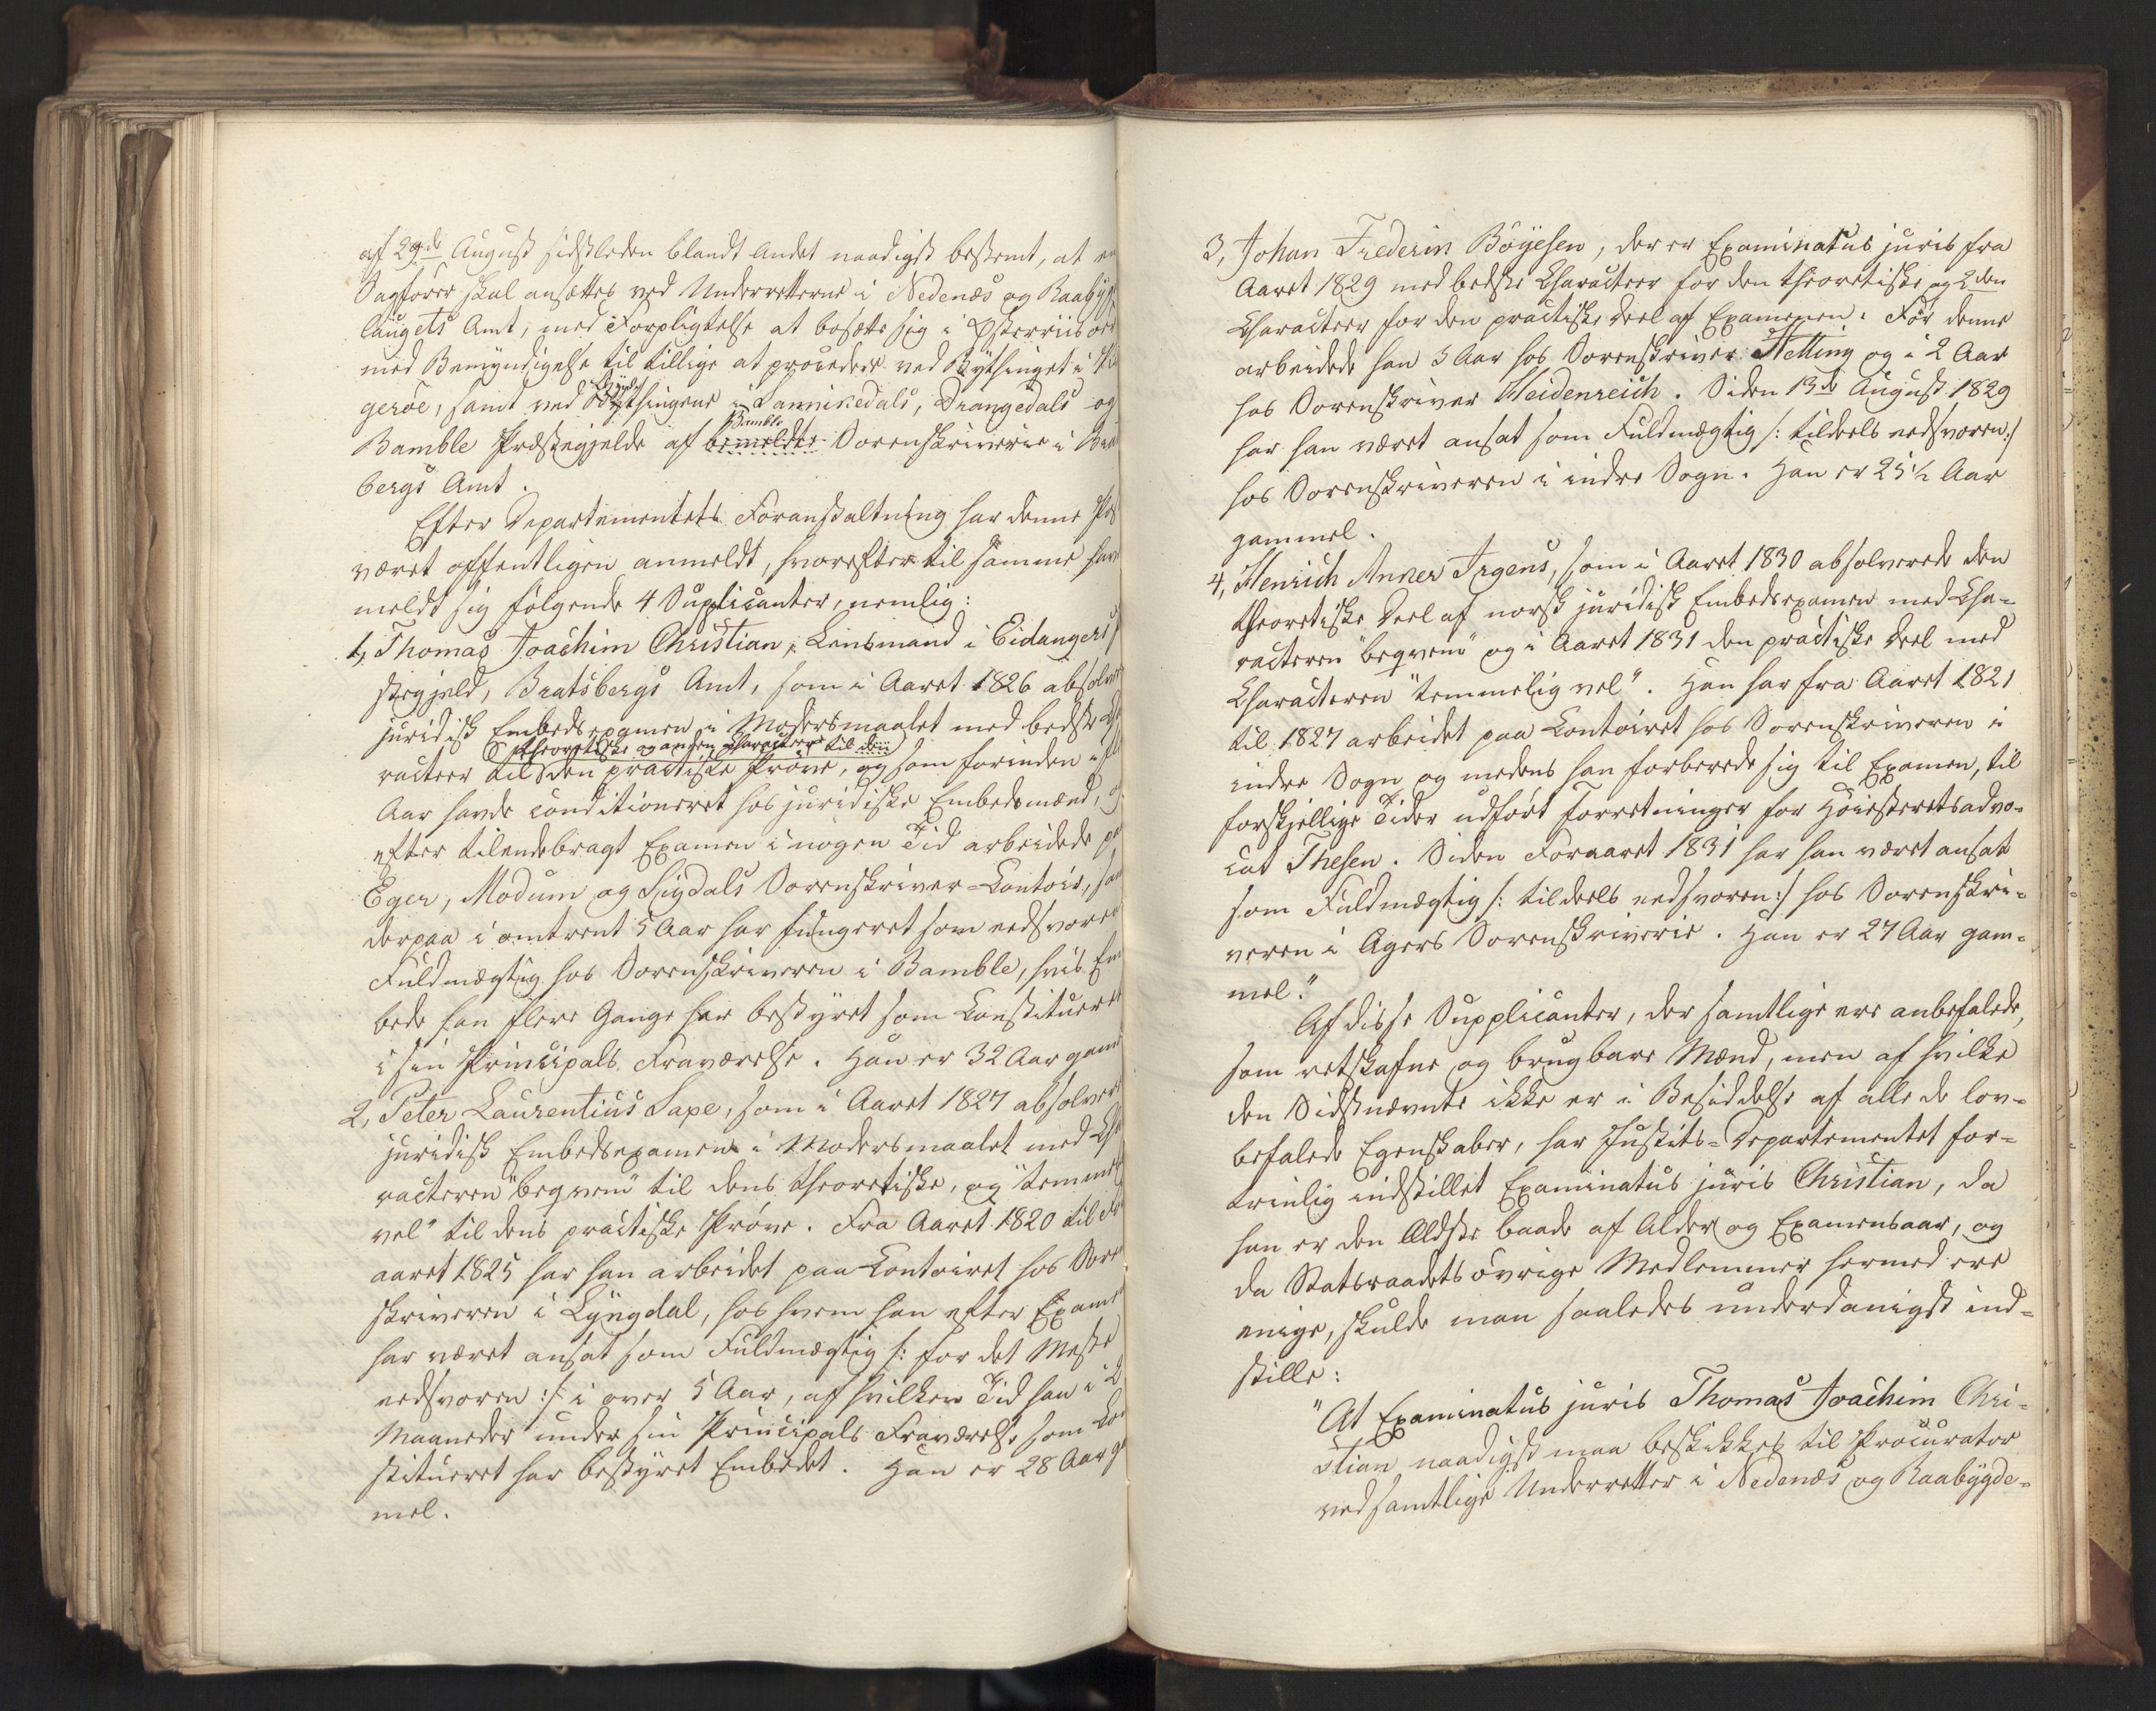 af 29de August sidstleden blandt Andet naadigst bestemt, at en
Sagfører skal ansættes ved Underretterne i Nedenæs og Raabyg
laugets Amt, med Forpligtelse at bosætte sig i Østerriisøer
med Bemyndigelse til tillige at procedere ved Bythinget i
gerøe, samt ved Bygdethingene i Sannikedals, Drangedals og
Bamble
Bamble Præstegjelde af bemeldte Sorenskriverie i
bergs Amt.
Efter Departementets Foranstaltning har denne Post
været offentligen anmeldt, hvorefter til samme have
meldt sig følgende 4 Suplicanter, nemlig:
1, Thomas Joachim Christian, Lensmand i Eidangers
stegjeld, Bratsbergs Amt, som i Aaret 1826 absolver
juridisk Embedsexamen i Modersmaalet med bedste Cha
theoretiske og anden Character til den
racteer til den practiske Prøve, og som forinden i
Aar havde conditioneret hos juridiske Embedsmænd, og
efter tilendebragt Examen i nogen Tid arbeidede paa
Eger, Modum og Sigdals Sorenskriver-Contoir, sam
derpaa i omtrent 5 Aar har fungeret som eedsvoren
Fuldmægtig hos Sorenskriveren i Bamble, hvis Em
bede han flere Gange har bestyret som Constitueret
i sin Principals Fraværelse. Han er 32 Aar gam
2, Peter Laurentius Saxe, som i Aaret 1827 absolver
juridisk Embedsexamen i Modersmaalet med Cha
racteren "beqvem" til dens theoretiske, og "temmel
vel" til dens practiske Prøve. Fra Aaret 1820 til For
aaret 1825 har han arbeidet paa Contoiret hos Soren
skriveren i Lyngdal, hos hvem han efter Examen
har været ansat som Fuldmægtig /: for det Meste
eedsvoren :/ i over 5 Aar, af hvilken Tid han i 2
Maaneder under sin Principals Fraværelse som Con
stitueret har bestyret Embedet. Han er 28 Aar ga
mel.
3, Johan Frederin Böyesen, der er Examinatus juris fra
Aaret 1829 med bedste Characteer for den theoretiske og 2den
Characteer for den practiske Deel af Examenen. Før denne
arbeidede han 3 Aar hos Sorenskriver Netting og i 2 Aar
hos Sorenskriver Heidenreich. Siden 13de August 1829
har han været ansat som Fuldmægtig /: tildeels eedsvoren :/
hos Sorenskriveren i indre Sogn. Han er 25½ Aar
gammel.
4, Henrich Anker Irgens, som i Aaret 1830 absolverede den
theoretiske Deel af norsk juridisk Embedsexamen med Cha-
racteren "beqvem" og i Aaret 1831 den practiske Deel med
Characteren "temmelig vel". Han har fra Aaret 1821
til 1827 arbeidet paa Contoiret hos Sorenskriveren i
indre Sogn og medens han forberede sig til Examen, til
forskjellige Tider udført Forretninger for Høiesteretsadvo-
cat Thesen. Siden Foraaret 1831 har han været ansat
som Fuldmægtig /: tildeels eedsvoren :/ hos Sorenskri-
veren i Agers Sorenskriverie. Han er 27 Aar gam-
mel."
Af disse Supplicanter, der samtlige ere anbefalede,
som retskafne og brugbare Mænd, men af hvilke
den Sidstnævnte ikke er i Besiddelse af alle de lov-
befalede Egenskaber, har Justits-Departementet for-
trinlig indstillet Examinatus juris Christian, da
han er den Ældste baade af Alder og Examensaar, og
da Statsraadets øvrige Medlemmer hermed ere
enige, skulde man saaledes underdanigst ind-
stille:
"At Examinatus juris Thomas Joachim Chri-
stian naadigst maa beskikkes til Procurator
ved samtlige Underretter i Nedenæs og Raabygde-